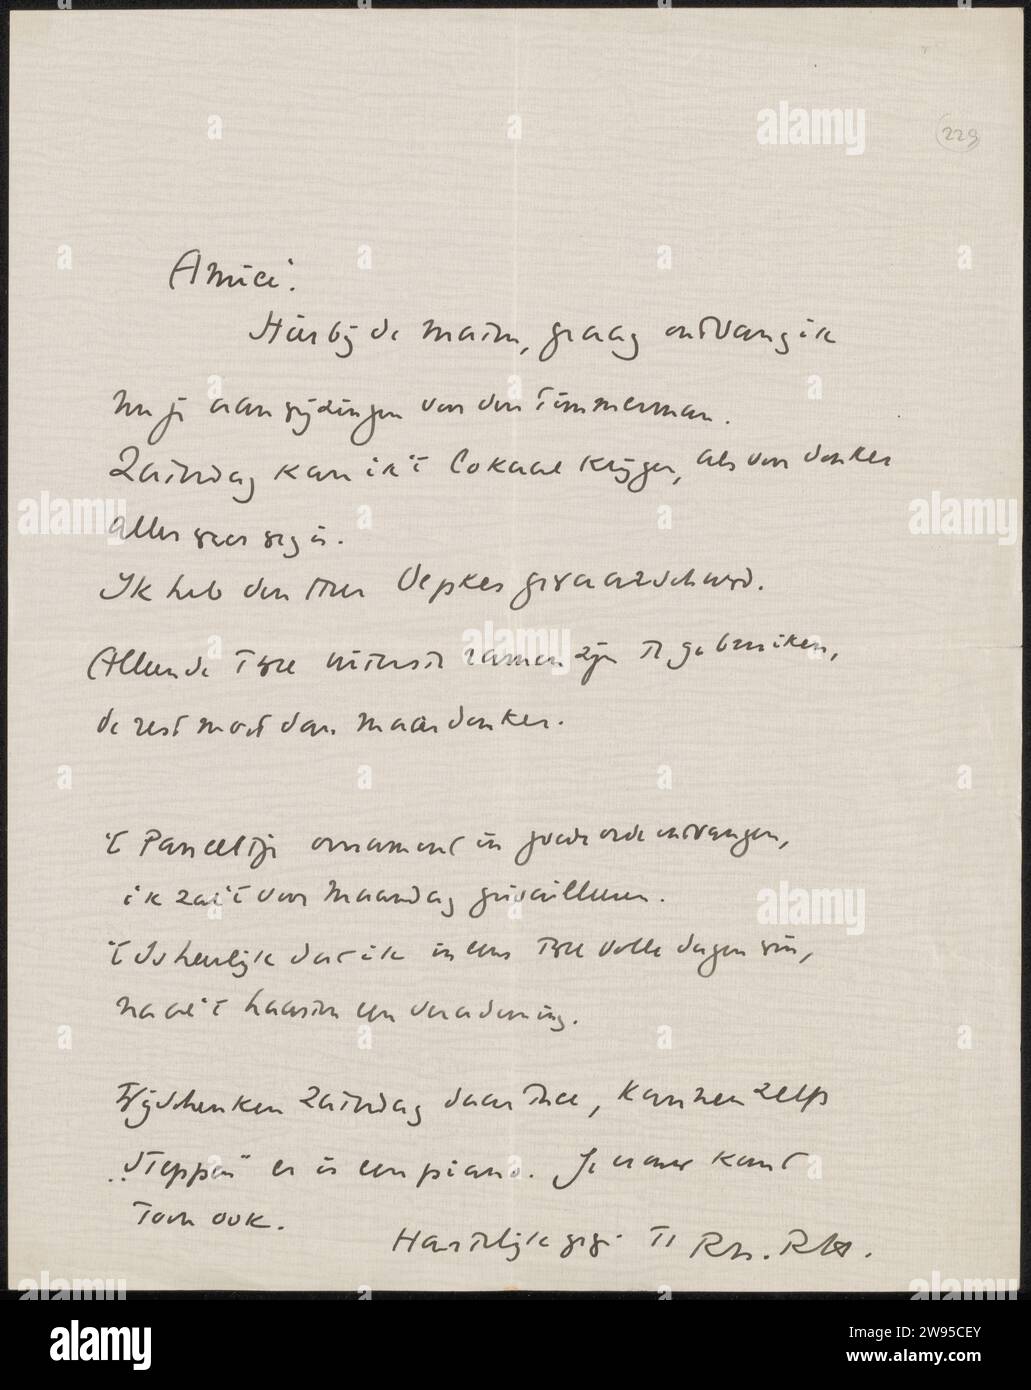 229
Amice!
Hierbij de maten, graag ontvang ik
nu je aanwijzingen voor den timmerman.
Zaterdag kan ik 't lokaal krijgen, als von donker
alles weer weg is.
Ik heb den Heer Oepkes gewaarschuwd.
Alleen de twee uiterste ramen zijn te gebruiken,
de rest moet dan maar donker.
't Pareeltje ornament in goede orde ontvangen,
ik zal 't voor Maandag
't Is heerlijk dat ik in eens twee volle dagen win,
na al 't haasten een verademing.
Wij schenken Zaterdag daar Thee, kunnen zelfs
„steppen" er is een piano. Je vrouw komt
toch ook.
Hartelijk gegr. tt
alamy
Image ID: 2W95CEY
www.alamy.com